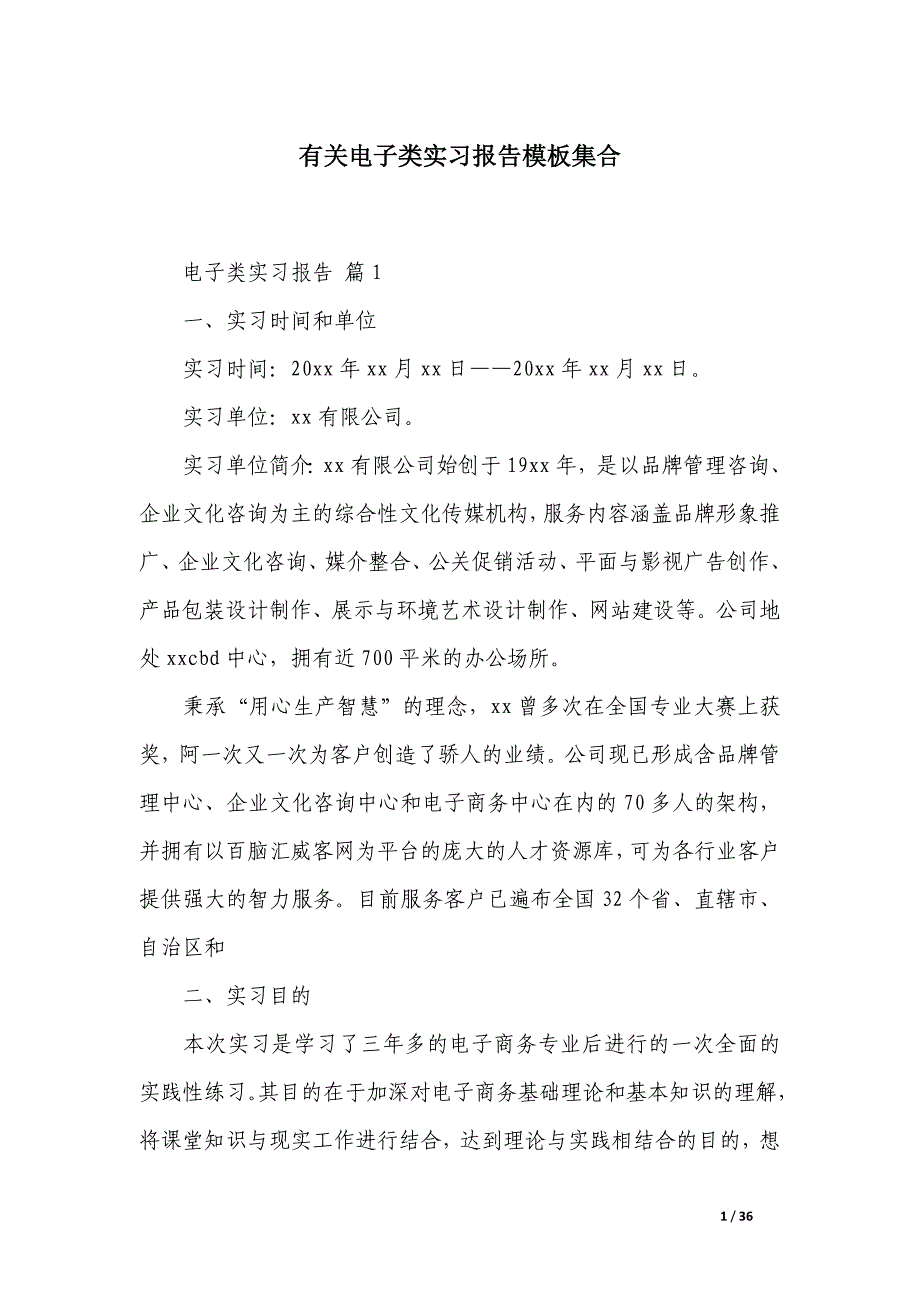 有关电子类实习报告模板集合
电子类实习报告 篇 1
一、实习时间和单位
实习时间：20xx 年 xx 月 xx 日——20xx 年 xx 月 xx 日。
实习单位：xx 有限公司。
实习单位简介：xx 有限公司始创于 19xx 年，是以品牌管理咨询、
企业文化咨询为主的综合性文化传媒机构，服务内容涵盖品牌形象推
广、企业文化咨询、媒介整合、公关促销活动、平面与影视广告创作、
产品包装设计制作、展示与环境艺术设计制作、网站建设等。公司地
处 xxcbd 中心，拥有近 700 平米的办公场所。
秉承“用心生产智慧”的理念，xx 曾多次在全国专业大赛上获
奖，阿一次又一次为客户创造了骄人的业绩。公司现已形成含品牌管
理中心、企业文化咨询中心和电子商务中心在内的 70 多人的架构，
并拥有以百脑汇威客网为平台的庞大的人才资源库，可为各行业客户
提供强大的智力服务。目前服务客户已遍布全国 32 个省、直辖市、
自治区和
二、实习目的
本次实习是学习了三年多的电子商务专业后进行的一次全面的
实践性练习。其目的在于加深对电子商务基础理论和基本知识的理解，
将课堂知识与现实工作进行结合，达到理论与实践相结合的目的，想
1 / 36